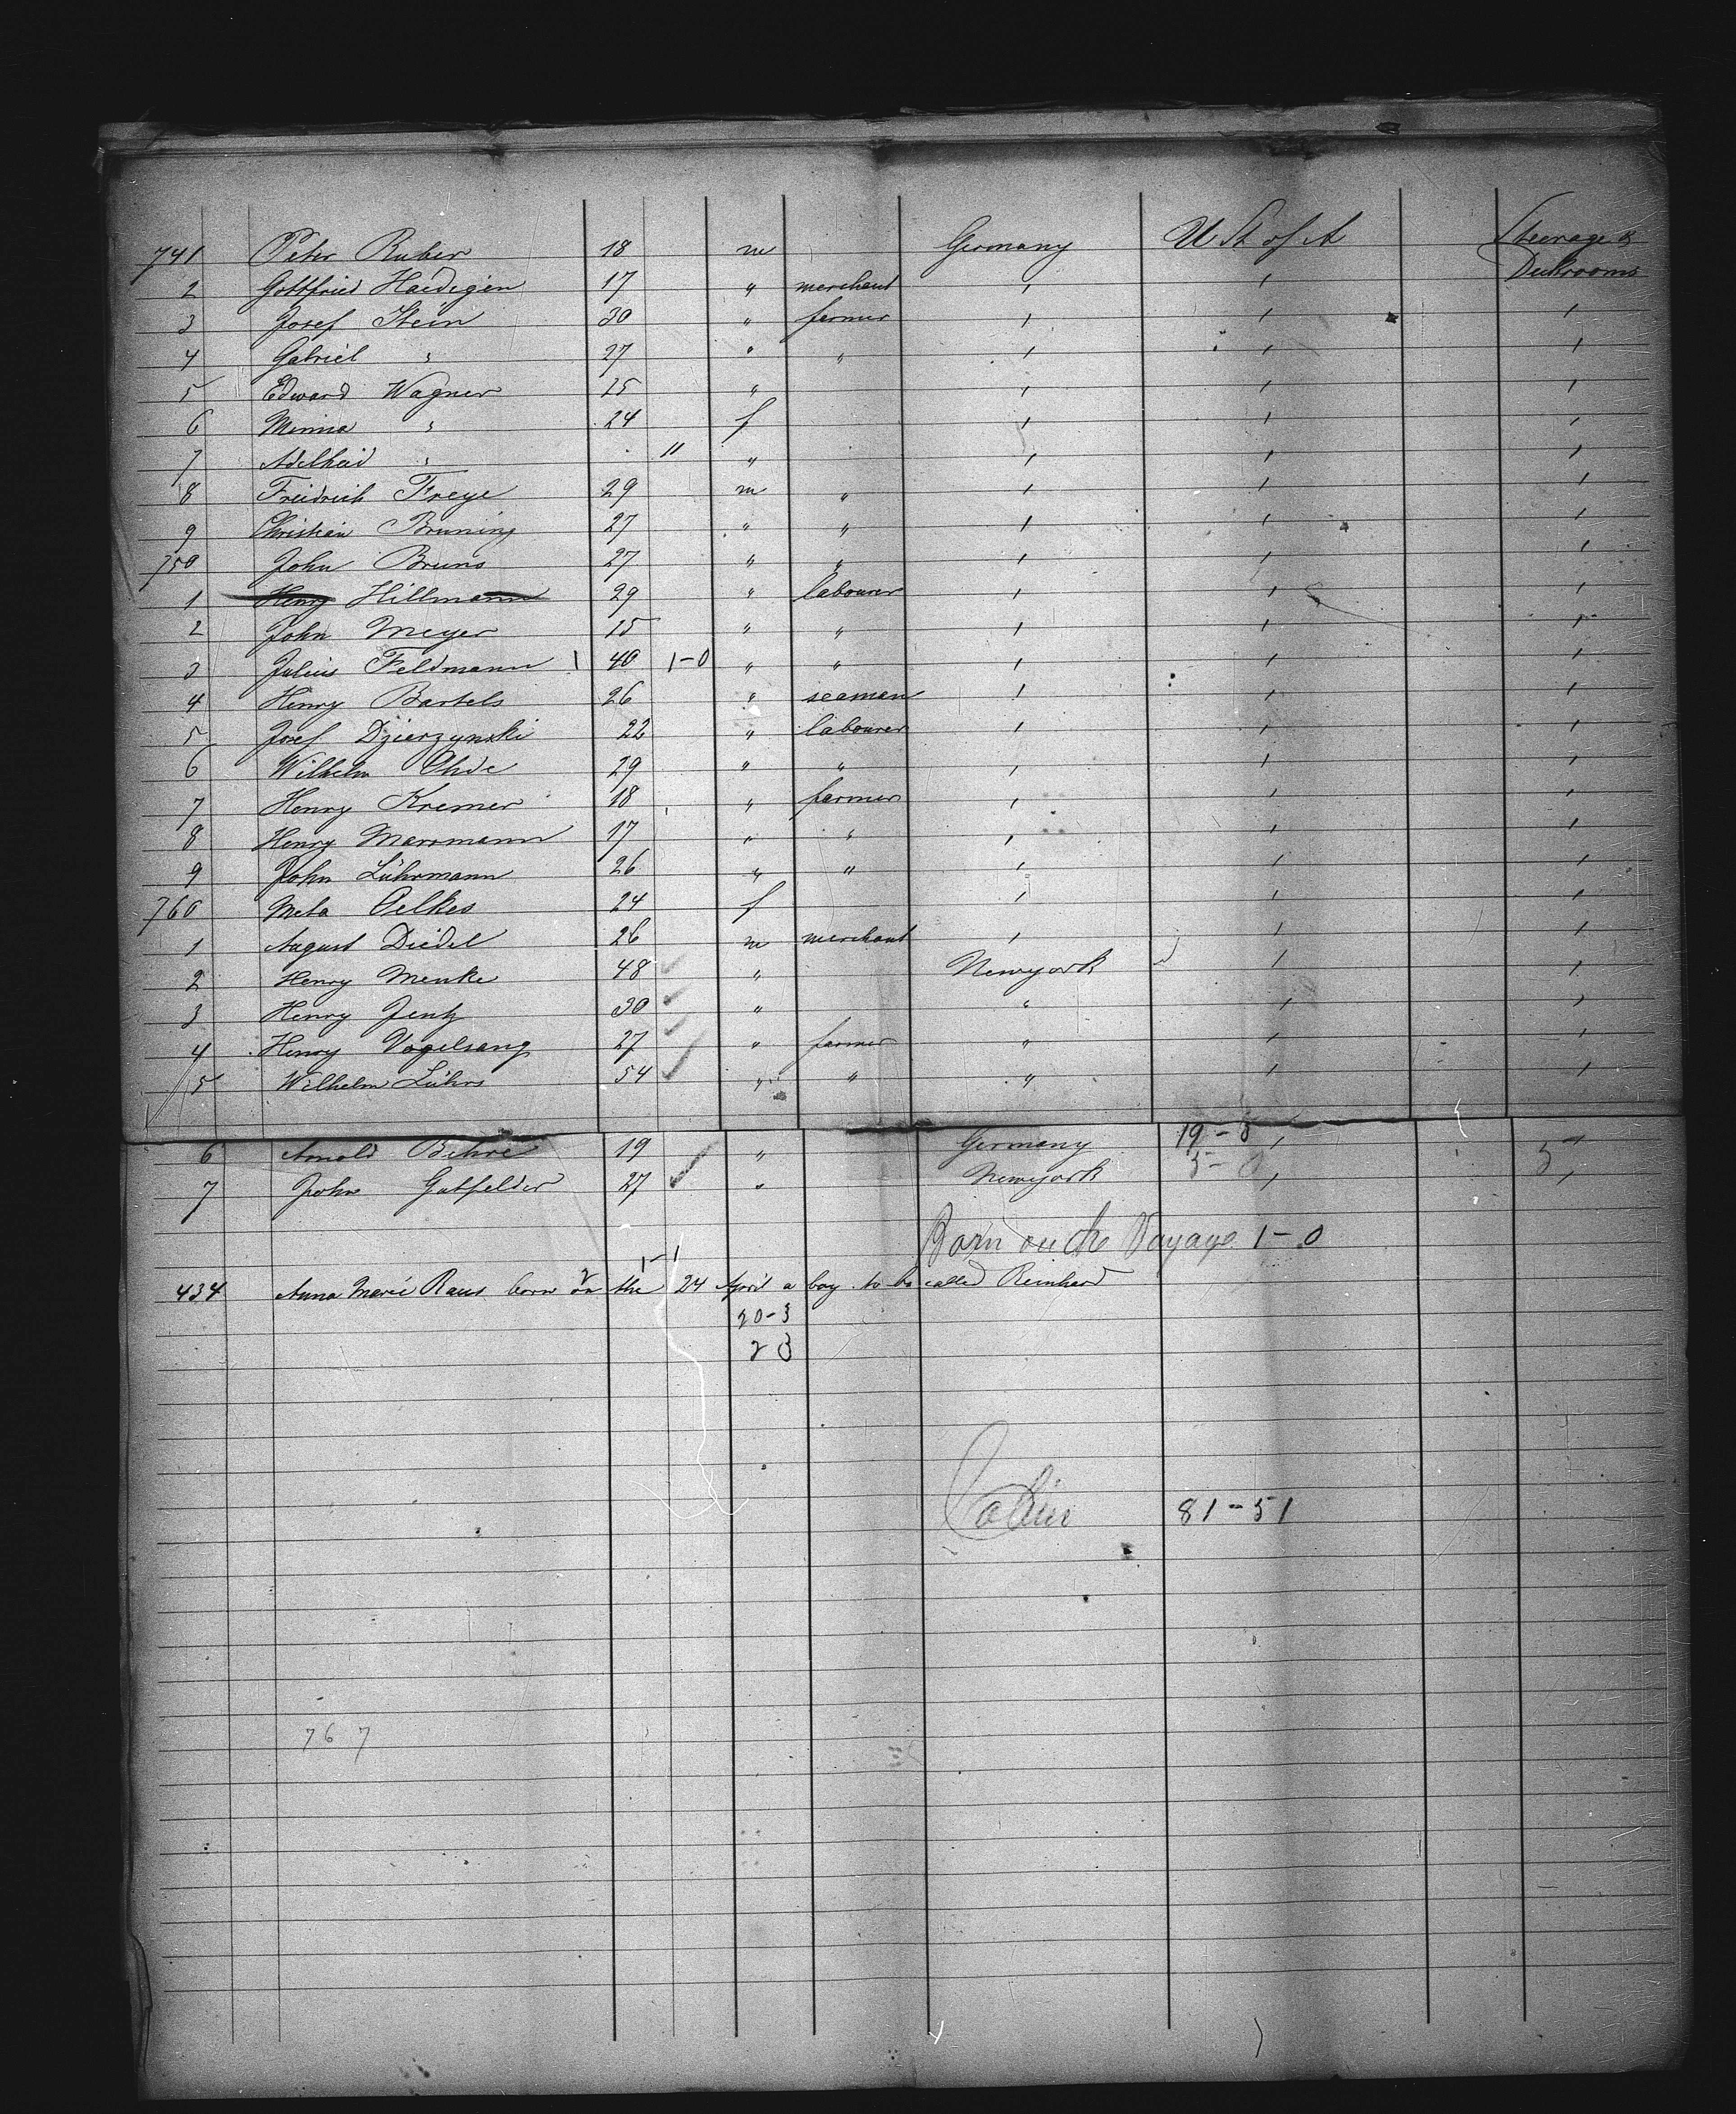 741 Peter Ruber 18 m Germany U St of A Steerage &
2 Gottfried Haedigen 17 " merchant ' ' Deckrooms
3 Josef Stein 30 " farmer ' ' '
4 Gabriel " 27 " " ' ' '
5 Edward Wagner 25 " ' ' '
6 Minna " 24 f ' ' '
7 Adelheid " 11 " ' ' '
8 Freidrich Freye 29 m " ' ' '
9 Christian Bruning 27 " " ' ' '
750 John Bruns 27 " " ' ' '
1 Henry Hillmann 29 " labourer ' ' '
2 John Meyer 15 " " ' ' '
3 Julius Feldmann 1 40 1-0 " " ' ' '
4 Henry Bartels 26 " seaman ' ' '
5 Josef Dzierzynski 22 " labourer ' ' '
6 Wilhelm Ohde 29 " " ' ' '
7 Henry Kremer 18 " farmer ' ' '
8 Henry Marrmann 17 " " ' ' '
9 John Lührmann 26 " " ' ' '
760 Meta Oelkes 24 f ' ' '
1 August Diedel 26 m merchant ' ' '
2 Henry Menke 48 " Newyork ' '
3 Henry Jentz 30 " " ' '
4 Henry Vogelsang 27 " farmer " ' '
5 Wilhelm Lührs 54 " " " ' '
6 Arnold Behre 19 " Germany 19-8 '
7 John Gutfelder 27 " Newyork 5-0 ' 5 '
Born on the Voyage 1-0
1-1
434 Anna Marie Raus born on the 24 April a boy to be called Reinhard
20-3
23
Cabin 81-51
767